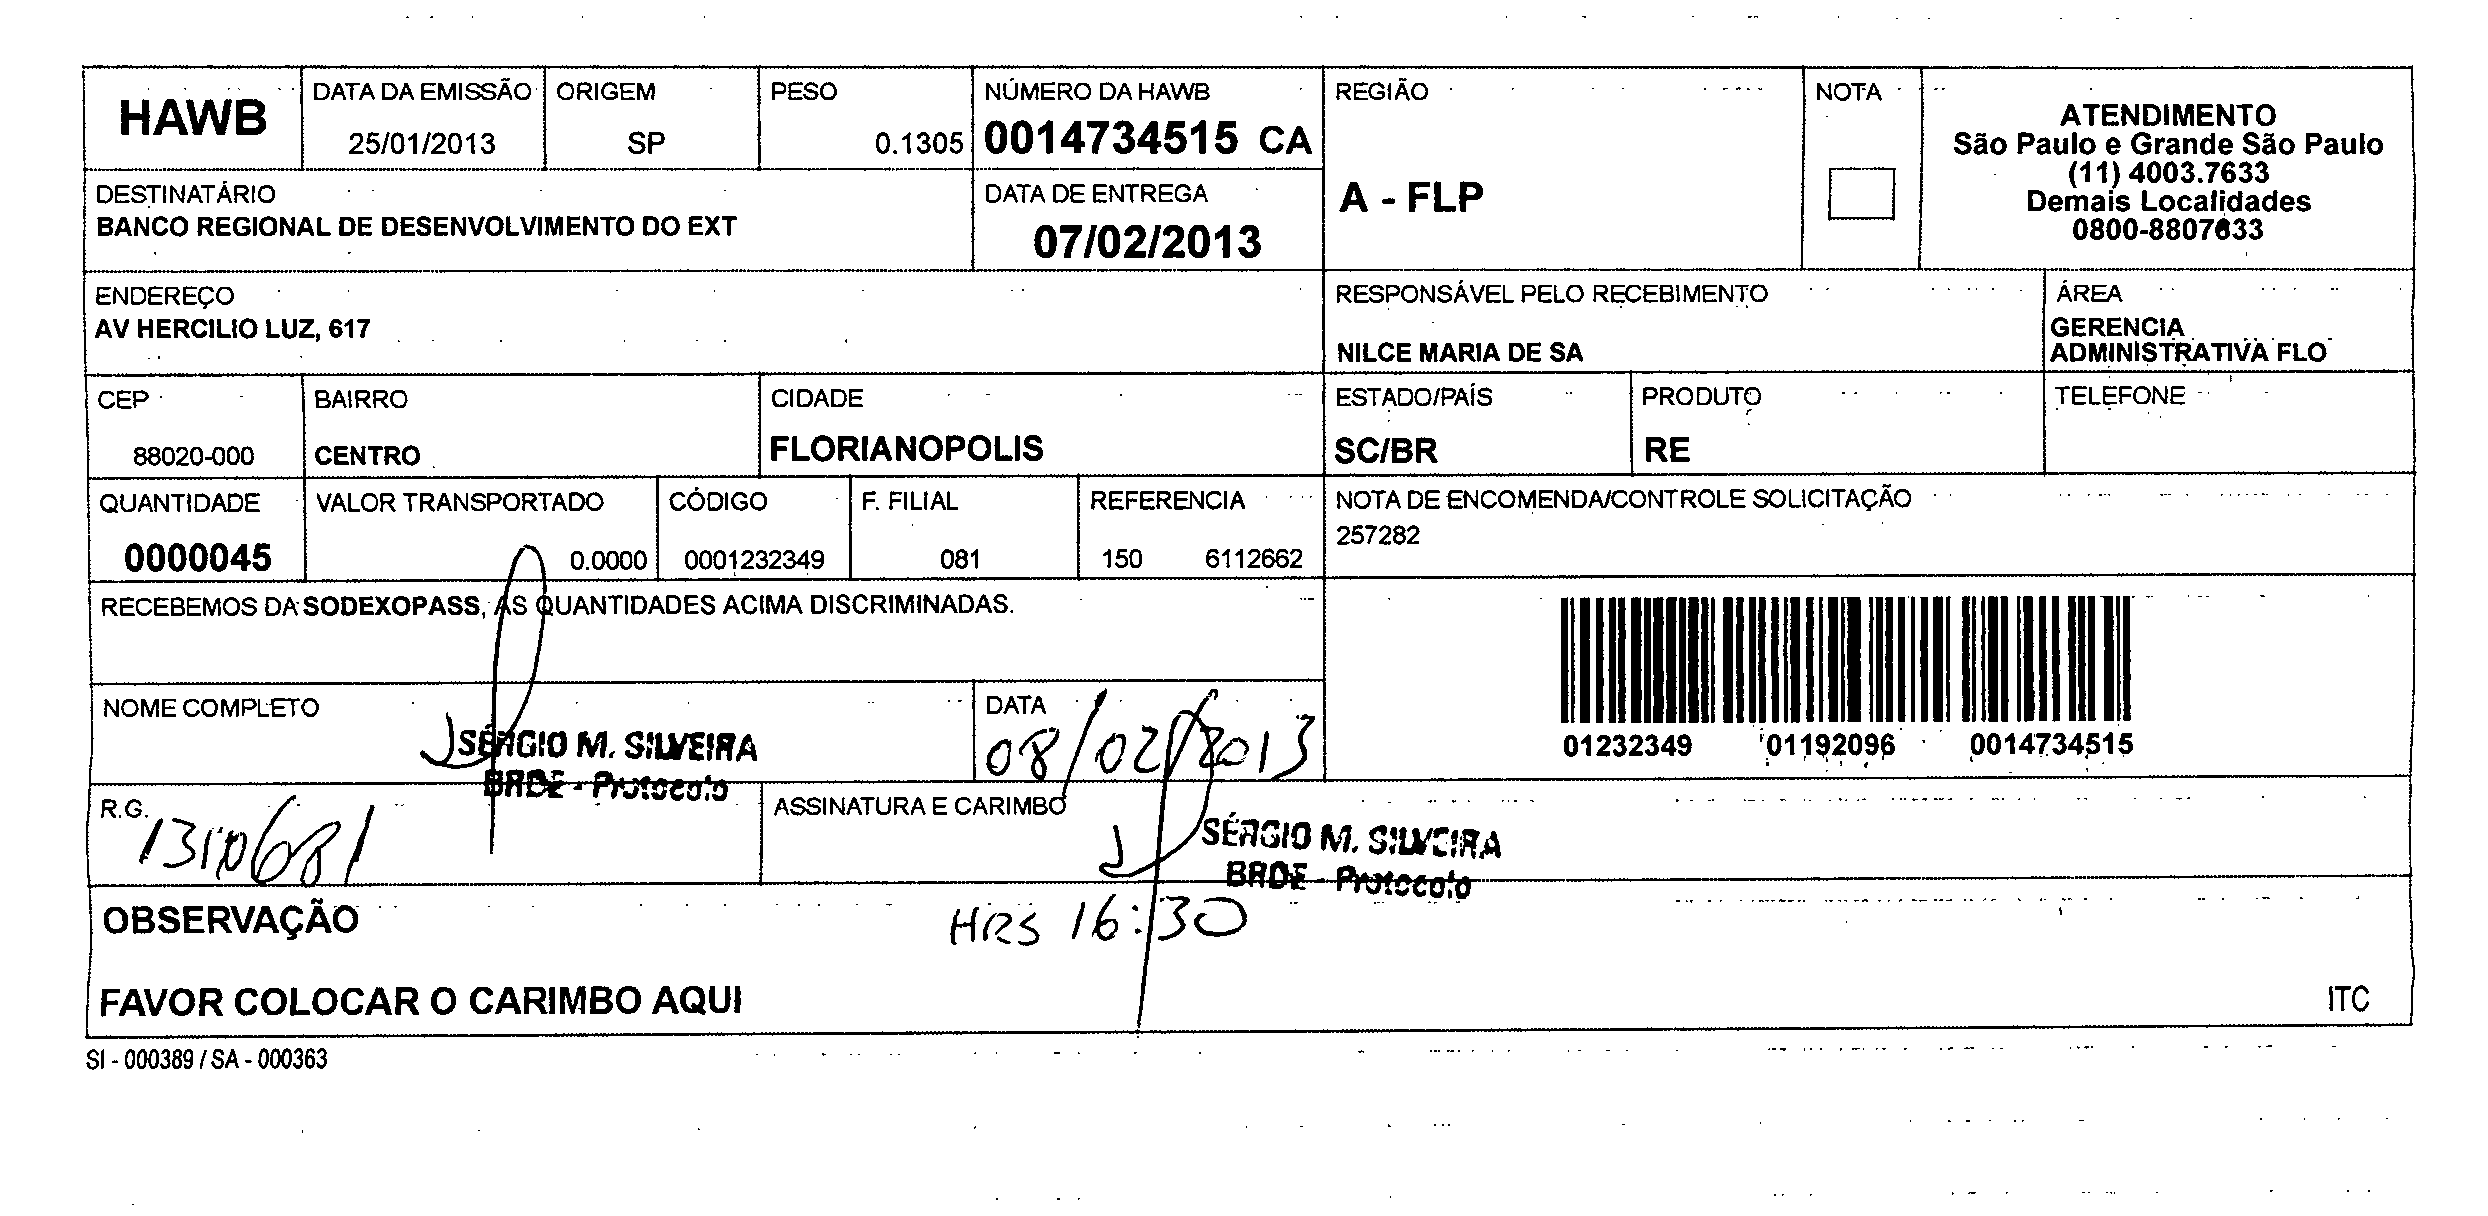 HAWB
DATA DA EMISSÃO
25/01/2013
ORIGEM
SP
PESO
0.1305
NÚMERO DA HAWB
0014734515 CA
REGIÃO
A - FLP
NOTA
ATENDIMENTO
São Paulo e Grande São Paulo
(11) 4003.7633
Demais Localidades
0800-8807633
DESTINATÁRIO
BANCO REGIONAL DE DESENVOLVIMENTO DO EXT
DATA DE ENTREGA
07/02/2013
ENDEREÇO
AV HERCILIO LUZ, 617
RESPONSÁVEL PELO RECEBIMENTO
NILCE MARIA DE SA
ÁREA
GERENCIA
ADMINISTRATIVA FLO
CEP
88020-000
BAIRRO
CENTRO
CIDADE
FLORIANOPOLIS
ESTADO/PAÍS
SC/BR
PRODUTO
RE
TELEFONE
QUANTIDADE
0000045
VALOR TRANSPORTADO
0.0000
CÓDIGO
0001232349
F. FILIAL
081
REFERENCIA
150 6112662
NOTA DE ENCOMENDA/CONTROLE SOLICITAÇÃO
257282
RECEBEMOS DA SODEXOPASS, AS QUANTIDADES ACIMA DISCRIMINADAS.
01232349 01192096 0014734515
NOME COMPLETO
SÉRGIO M. SILVEIRA
BRDE - Protocolo
DATA
08/02/2013
R.G.
ASSINATURA E CARIMBO
SÉRGIO M. SILVEIRA
BRDE - Protocolo
OBSERVAÇÃO
HRS 16:30
FAVOR COLOCAR O CARIMBO AQUI
ITC
SI - 000389 / SA - 000363